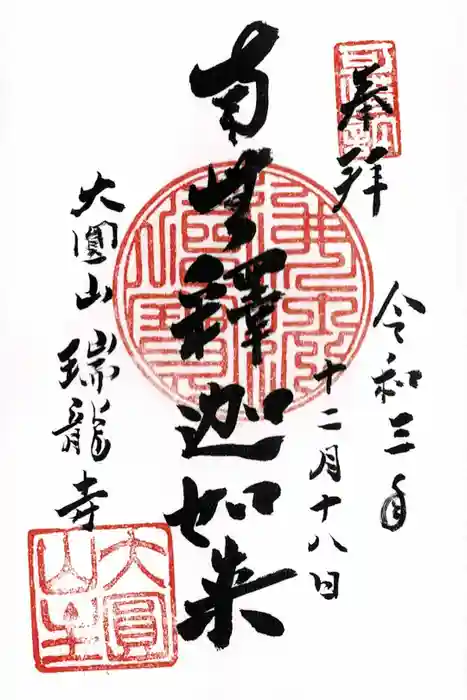 奉拜
令和三年
十二月十八日
南無釋迦如来
大圓山瑞龍寺
佛法僧寶
大圓山主